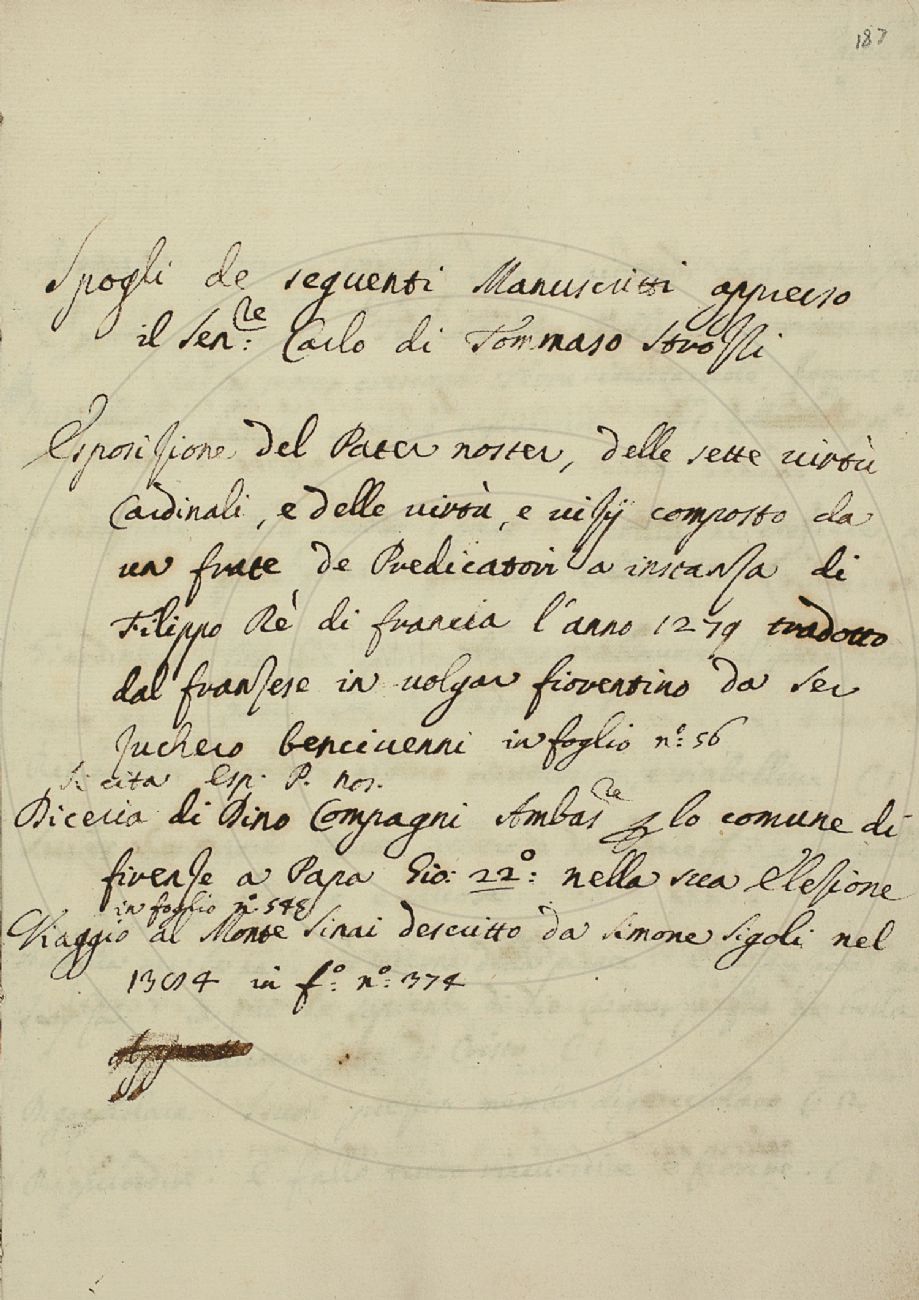 187
Spogli de seguenti Manuscritti appresso
il Sen:re Carlo di Tommaso Strozzi
Esposizione del Pater noster, delle sette virtù
Cardinali, e delle virtù, e vizij composto da
un frate de Predicatori a instanza di
Filippo Rè di francia l'anno 1279 tradotto
dal franzese in volgar fiorentino da Ser
zuchero bencivenni in foglio n.º 56
Si cita Esp. P. nos.
Diceria di Dino Compagni Ambasre lo comune di
firenze a Papa Gio: 22º: nella sua Elezione
in foglio nº 548
Viaggio al Monte Sinai descritto da Simone Sigoli nel
in fº: nº: 374